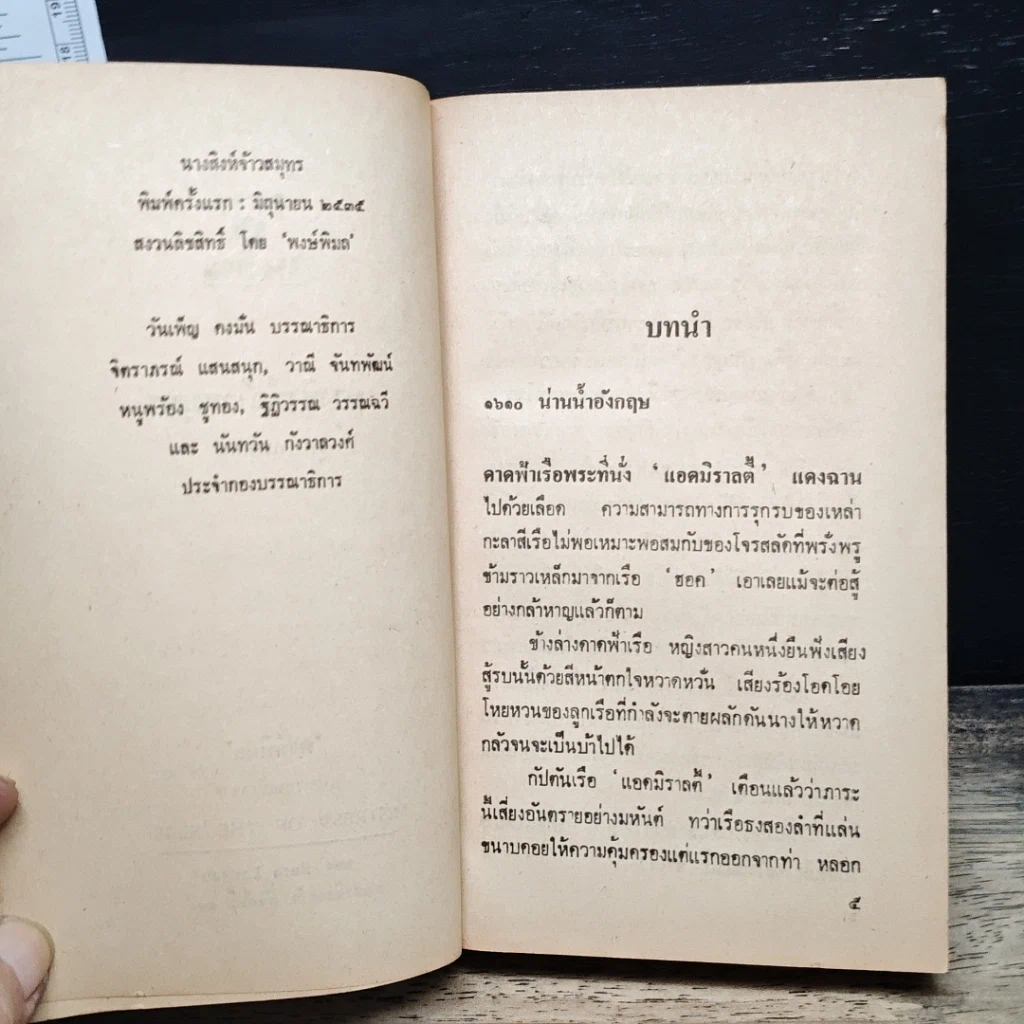 19
18
นางสิงห์จ้าวสมุทร
พิมพ์ครั้งแรก : มิถุนายน ๒๕๓๕
สงวนลิขสิทธิ์ โดย 'พงษ์พิมล'
วันเพ็ญ คงมั่น บรรณาธิการ
จิตราภรณ์ แสนสนุก, วาณี จันทพัฒน์
หนูพร้อง ชูทอง, ฐิฏิวรรณ วรรณฉวี
และ นันทวัน กังวาลวงศ์
ประจำกองบรรณาธิการ
บทนำ
๑๖๑๐ น่านน้ำอังกฤษ
ดาดฟ้าเรือพระที่นั่ง 'แอดมิราลตี้' แดงฉาน
ไปด้วยเลือด ความสามารถทางการรุกรบของเหล่า
กะลาสีเรือไม่พอเหมาะพอสมกับของโจรสลัดที่พรั่งพรู
ข้ามราวเหล็กมาจากเรือ 'ฮอค' เอาเลยแม้จะต่อสู้
อย่างกล้าหาญแล้วก็ตาม
ข้างล่างดาดฟ้าเรือ หญิงสาวคนหนึ่งยืนฟังเสียง
สู้รบนั้นด้วยสีหน้าตกใจหวาดหวั่น เสียงร้องโอดโอย
โหยหวนของลูกเรือที่กำลังจะตายผลักดันนางให้หวาด
กลัวจนจะเป็นบ้าไปได้
กัปตันเรือ 'แอดมิราลตี้' เตือนแล้วว่าภาระ
นี้เสี่ยงอันตรายอย่างมหันต์ ทว่าเรือธงสองลำที่แล่น
ขนาบคอยให้ความคุ้มครองแต่แรกออกจากท่า หลอก
๕